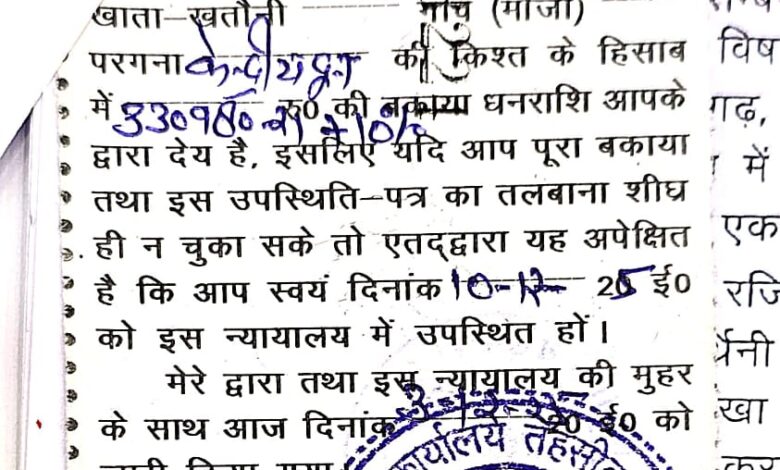 खाता–खतौनी गांव (मौजा)
परगना की किश्त के हिसाब
में 330980.21 + 10% रु0 की बकाया धनराशि आपके
द्वारा देय है, इसलिए यदि आप पूरा बकाया
तथा इस उपस्थिति–पत्र का तलबाना शीघ्र
ही न चुका सके तो एतद्द्वारा यह अपेक्षित
है कि आप स्वयं दिनांक 10-12- 2025 ई0
को इस न्यायालय में उपस्थित हों।
मेरे द्वारा तथा इस न्यायालय की मुहर
के साथ आज दिनांक 20 ई0 को
जारी किया गया।
विष
गढ़,
में
एक
रजि
खा